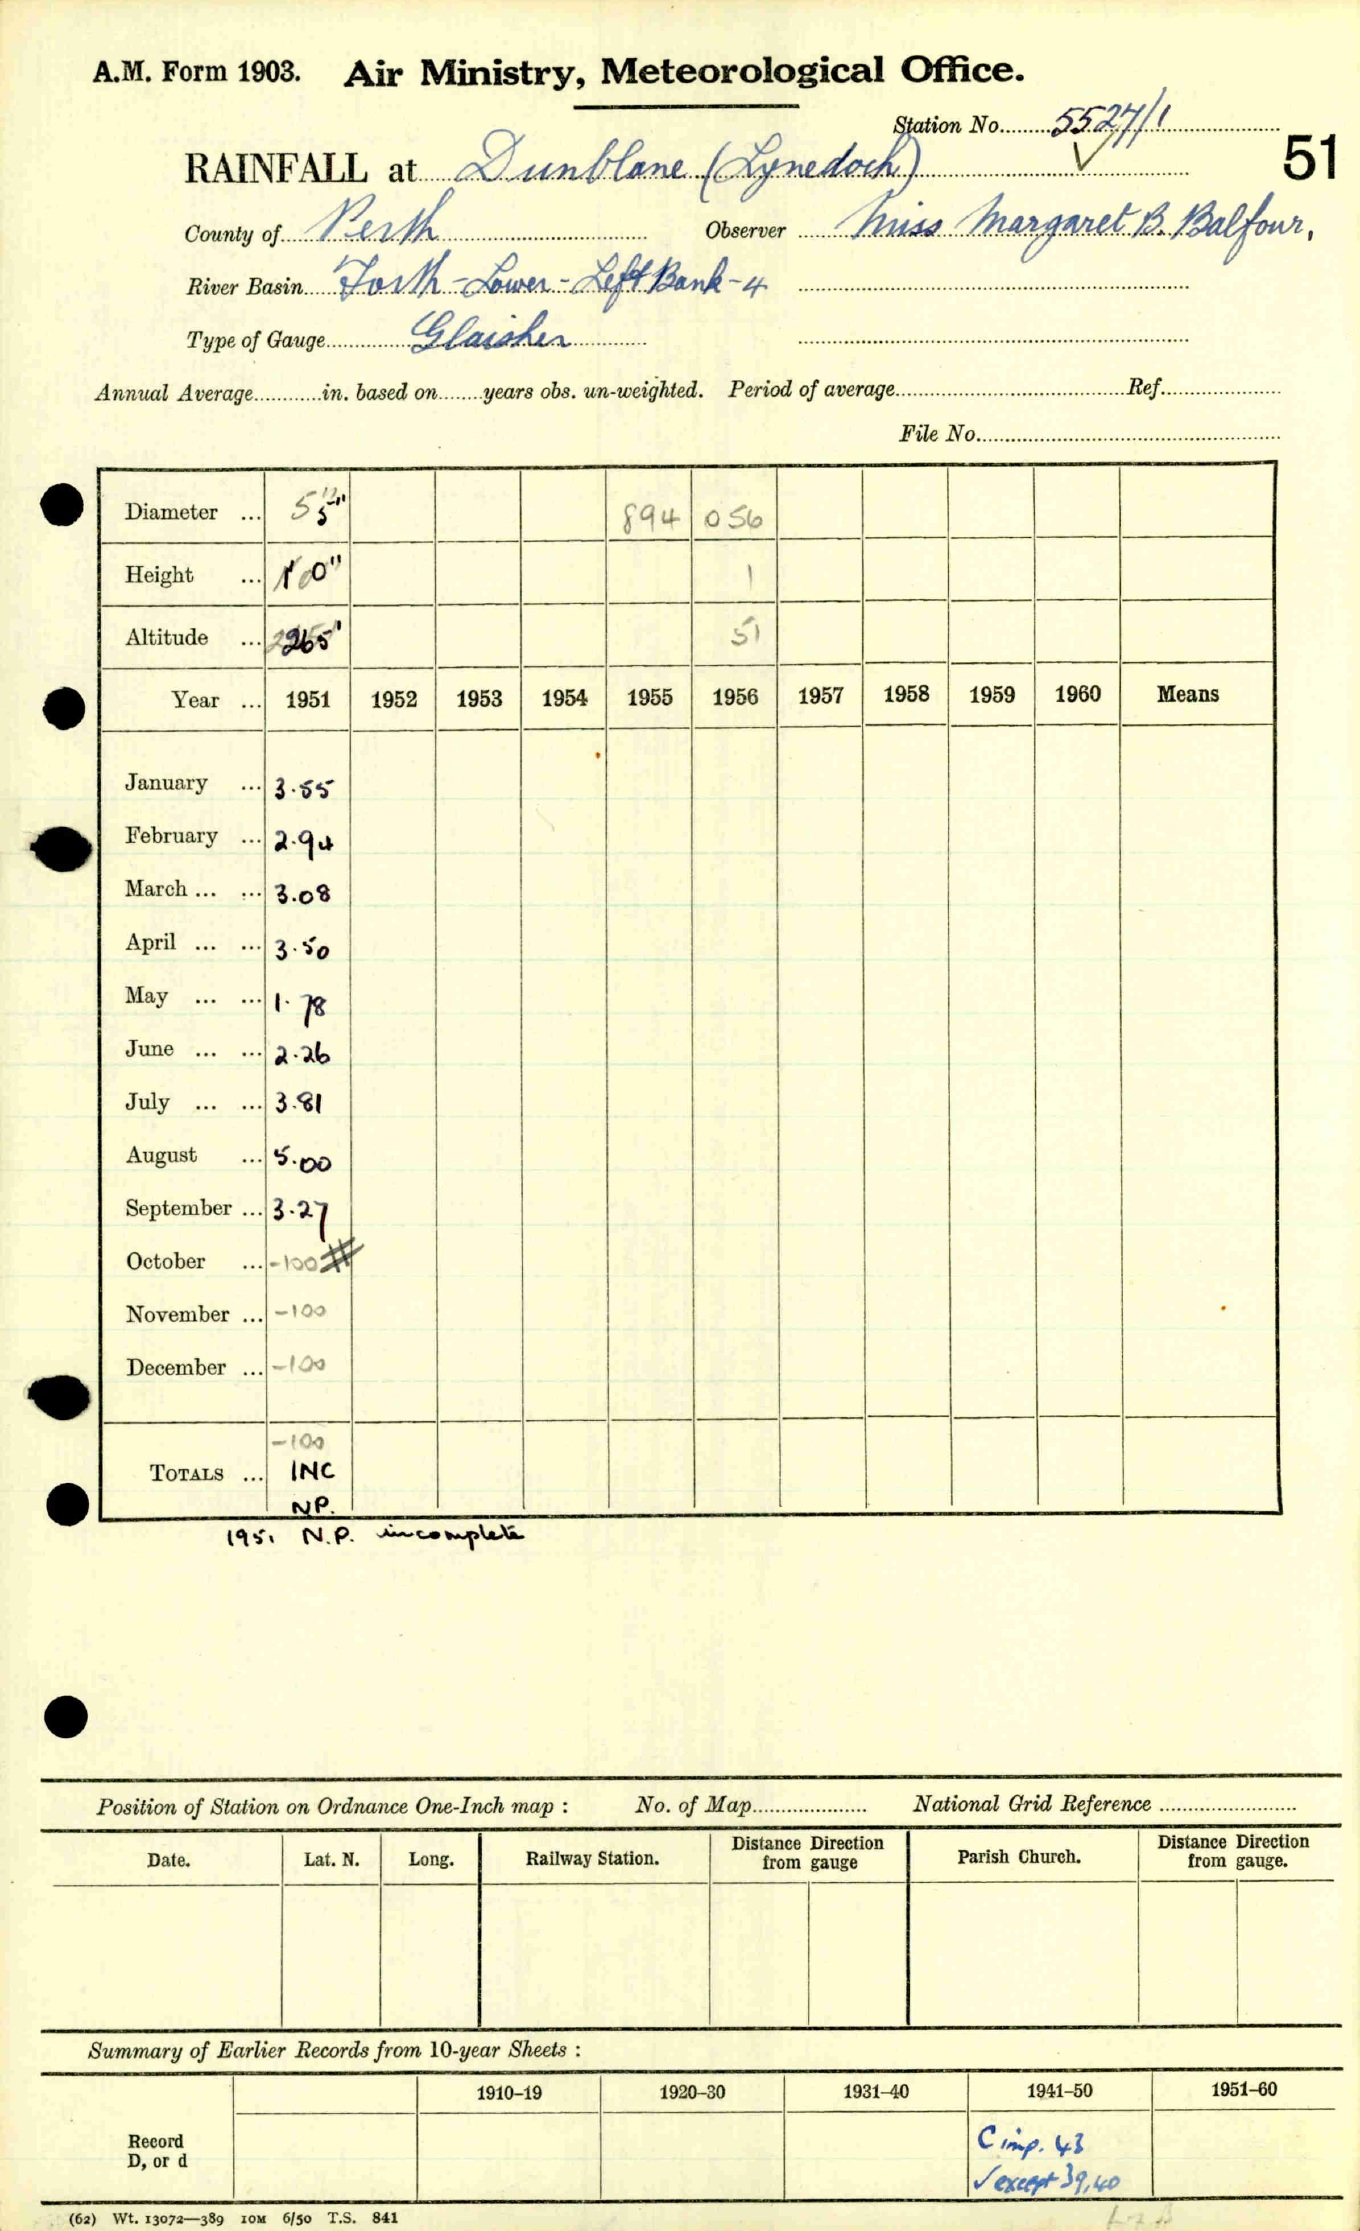 A.M. Form 1903. Air Ministry, Meteorological Office.
Station No. 5527/1
51
RAINFALL at Dunblane (Lynedoch)
County of Perth Observer Miss Margaret B. Balfour,
River Basin Forth - Lower - Left Bank - 4
Type of Gauge Glaisher
Annual Average in. based on years obs. un-weighted. Period of average Ref.
File No.
Diameter ... 5" 894 056
Height ... 1' 0" 1
Altitude ... 265' 51
Year ... 1951 1952 1953 1954 1955 1956 1957 1958 1959 1960 Means
January ... 3.55
February ... 2.94
March ... ... 3.08
April ... ... 3.50
May ... ... 1.78
June ... ... 2.26
July ... ... 3.81
August ... 5.00
September ... 3.27
October ... -100 #
November ... -100
December ... -100
-100
TOTALS ... INC
NP.
1951 N.P. incomplete
Position of Station on Ordnance One-Inch map : No. of Map National Grid Reference
Date. Lat. N. Long. Railway Station. Distance Direction from gauge Parish Church. Distance Direction from gauge.
Summary of Earlier Records from 10-year Sheets :
1910-19 1920-30 1931-40 1941-50 1951-60
Record D, or d
C imp. 43
✓ except 39,40
(62) Wt. 13072—389 10M 6/50 T.S. 841